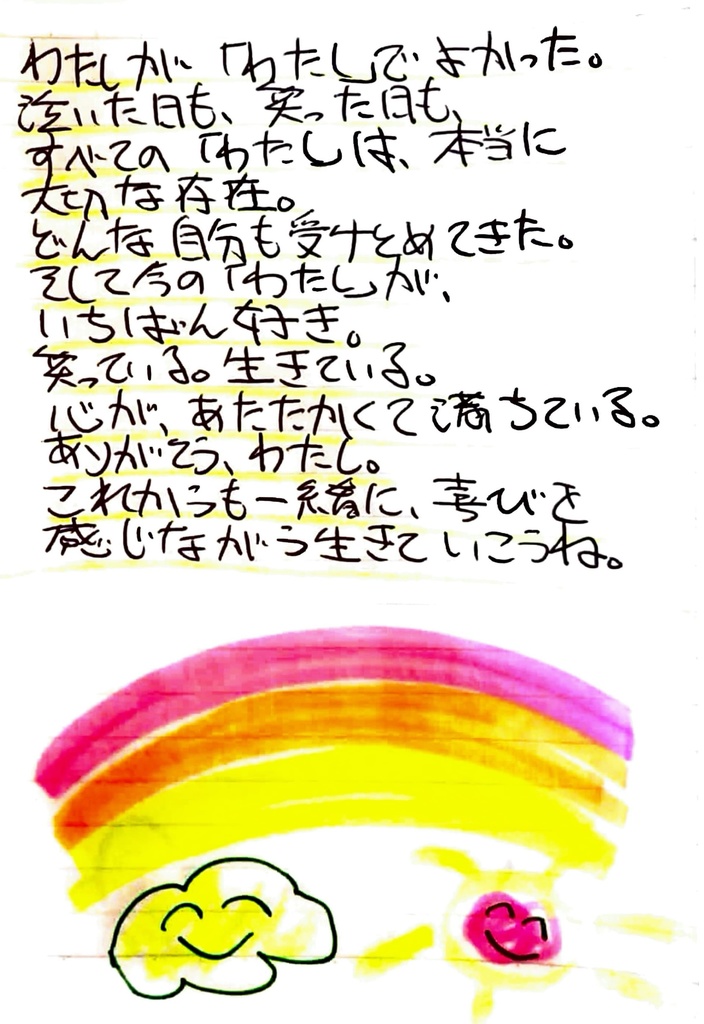 わたしが「わたし」でよかった。
泣いた日も、笑った日も、
すべての「わたし」は、本当に
大切な存在。
どんな自分も受けとめてきた。
そして今の「わたし」が、
いちばん好き。
笑っている。生きている。
心が、あたたかくて満ちている。
ありがとう、わたし。
これからも一緒に、喜びを
感じながら生きていこうね。